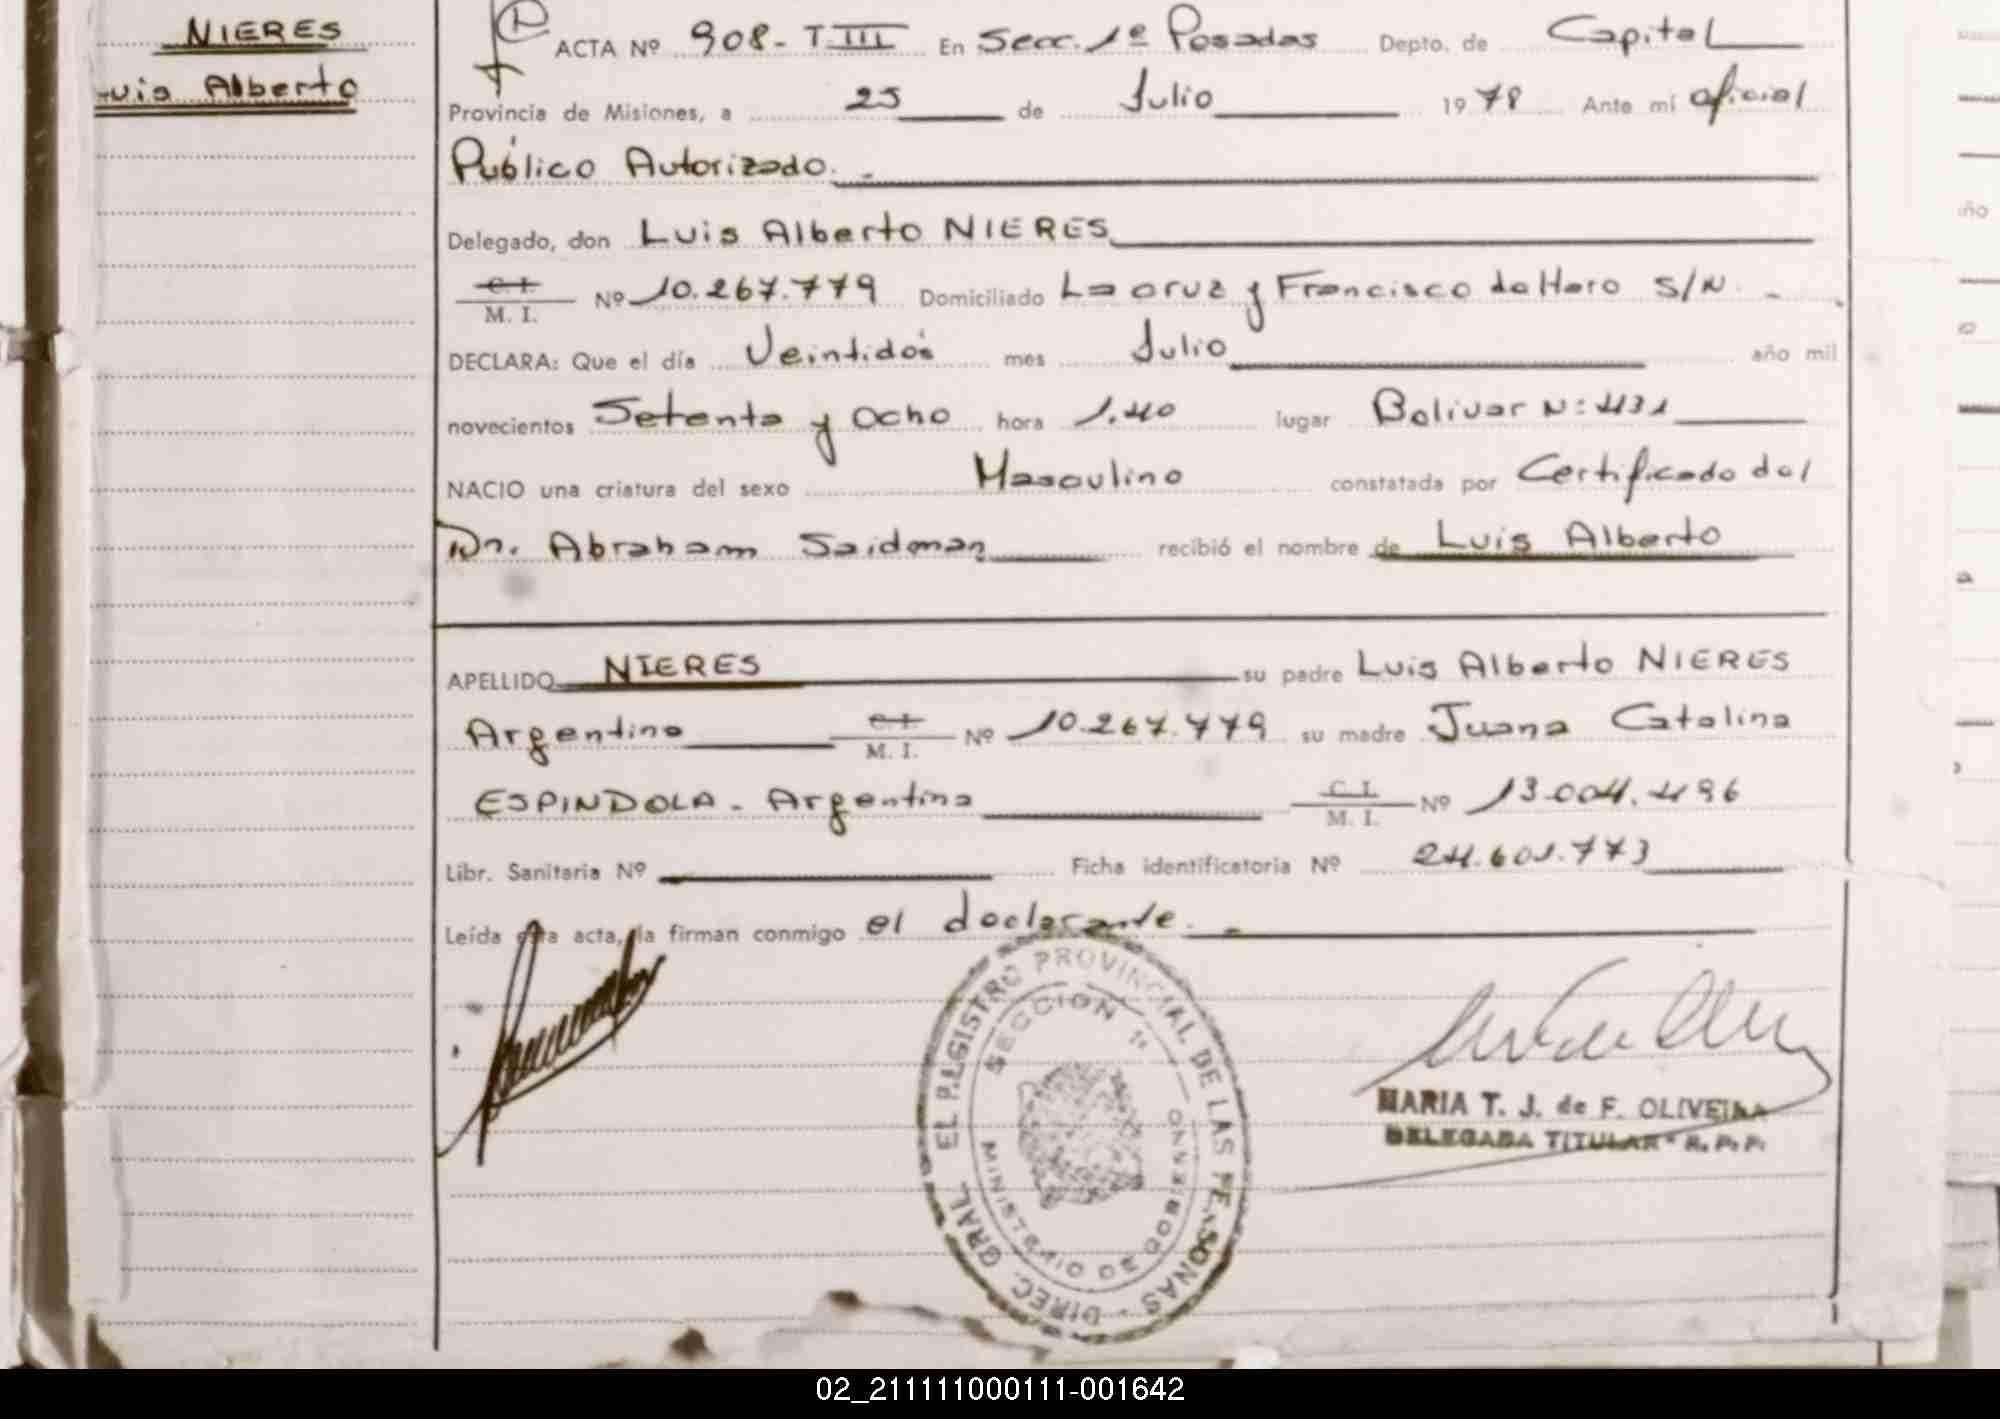 NIERES
Luis Alberto
ACTA Nº 908- T III En Secc. 1º Posadas Depto. de Capital
Provincia de Misiones, a 25 de Julio 1978 Ante mí oficial
Público Autorizado. -
Delegado, don Luis Alberto NIERES
C. I. M. I. Nº 10.267.779 Domiciliado La cruz y Francisco de Haro S/N. -
DECLARA: Que el día Veintidós mes Julio año mil
novecientos Setenta y Ocho hora 1.40 lugar Bolivar N: 431
NACIO una criatura del sexo Masculino constatada por Certificado del
Dr. Abraham Saidman recibió el nombre de Luis Alberto
APELLIDO NIERES su padre Luis Alberto NIERES
Argentino C. I. M. I. Nº 10.267.779 su madre Juana Catalina
ESPINDOLA - Argentina C. I. M. I. Nº 13.004.496
Libr. Sanitaria Nº Ficha identificatoria Nº 24.601.773
Leída esta acta, la firman conmigo el declarante. -
DIREC. GRAL. EL P. REGISTRO PROVINCIAL DE LAS PERSONAS -
SECCION 1ª
MINISTERIO DE GOBIERNO
MARIA T. J. de F. OLIVEIRA
DELEGADA TITULAR - R. P. P.
ño
o
a
02_211111000111-001642